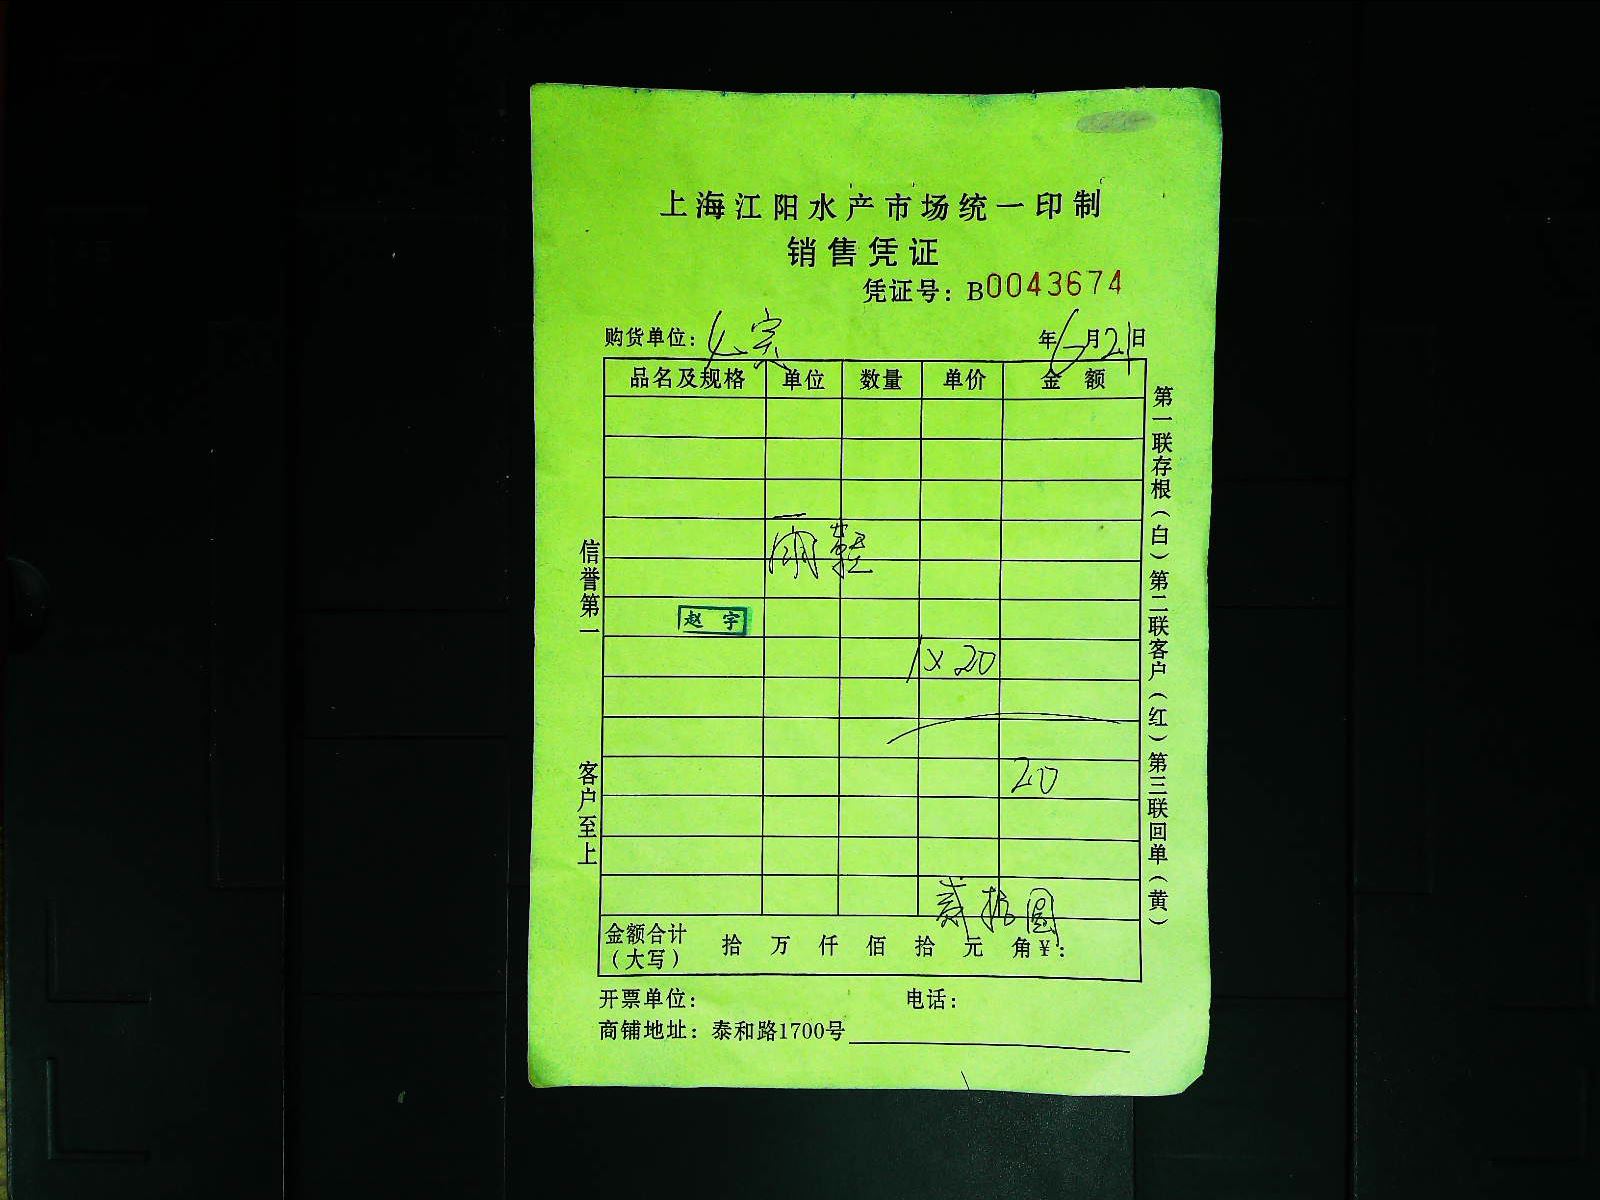 上海江阳水产市场统一印制
销售凭证
凭证号：B0043674
购货单位：
年6月21日
品名及规格 单位 数量 单价 金额
雨鞋
赵宇
1×20
20
贰拾圆
金额合计（大写） 拾 万 仟 佰 拾 元 角¥：
开票单位： 电话：
商铺地址：泰和路1700号
信誉第一 客户至上
第一联存根（白）第二联客户（红）第三联回单（黄）